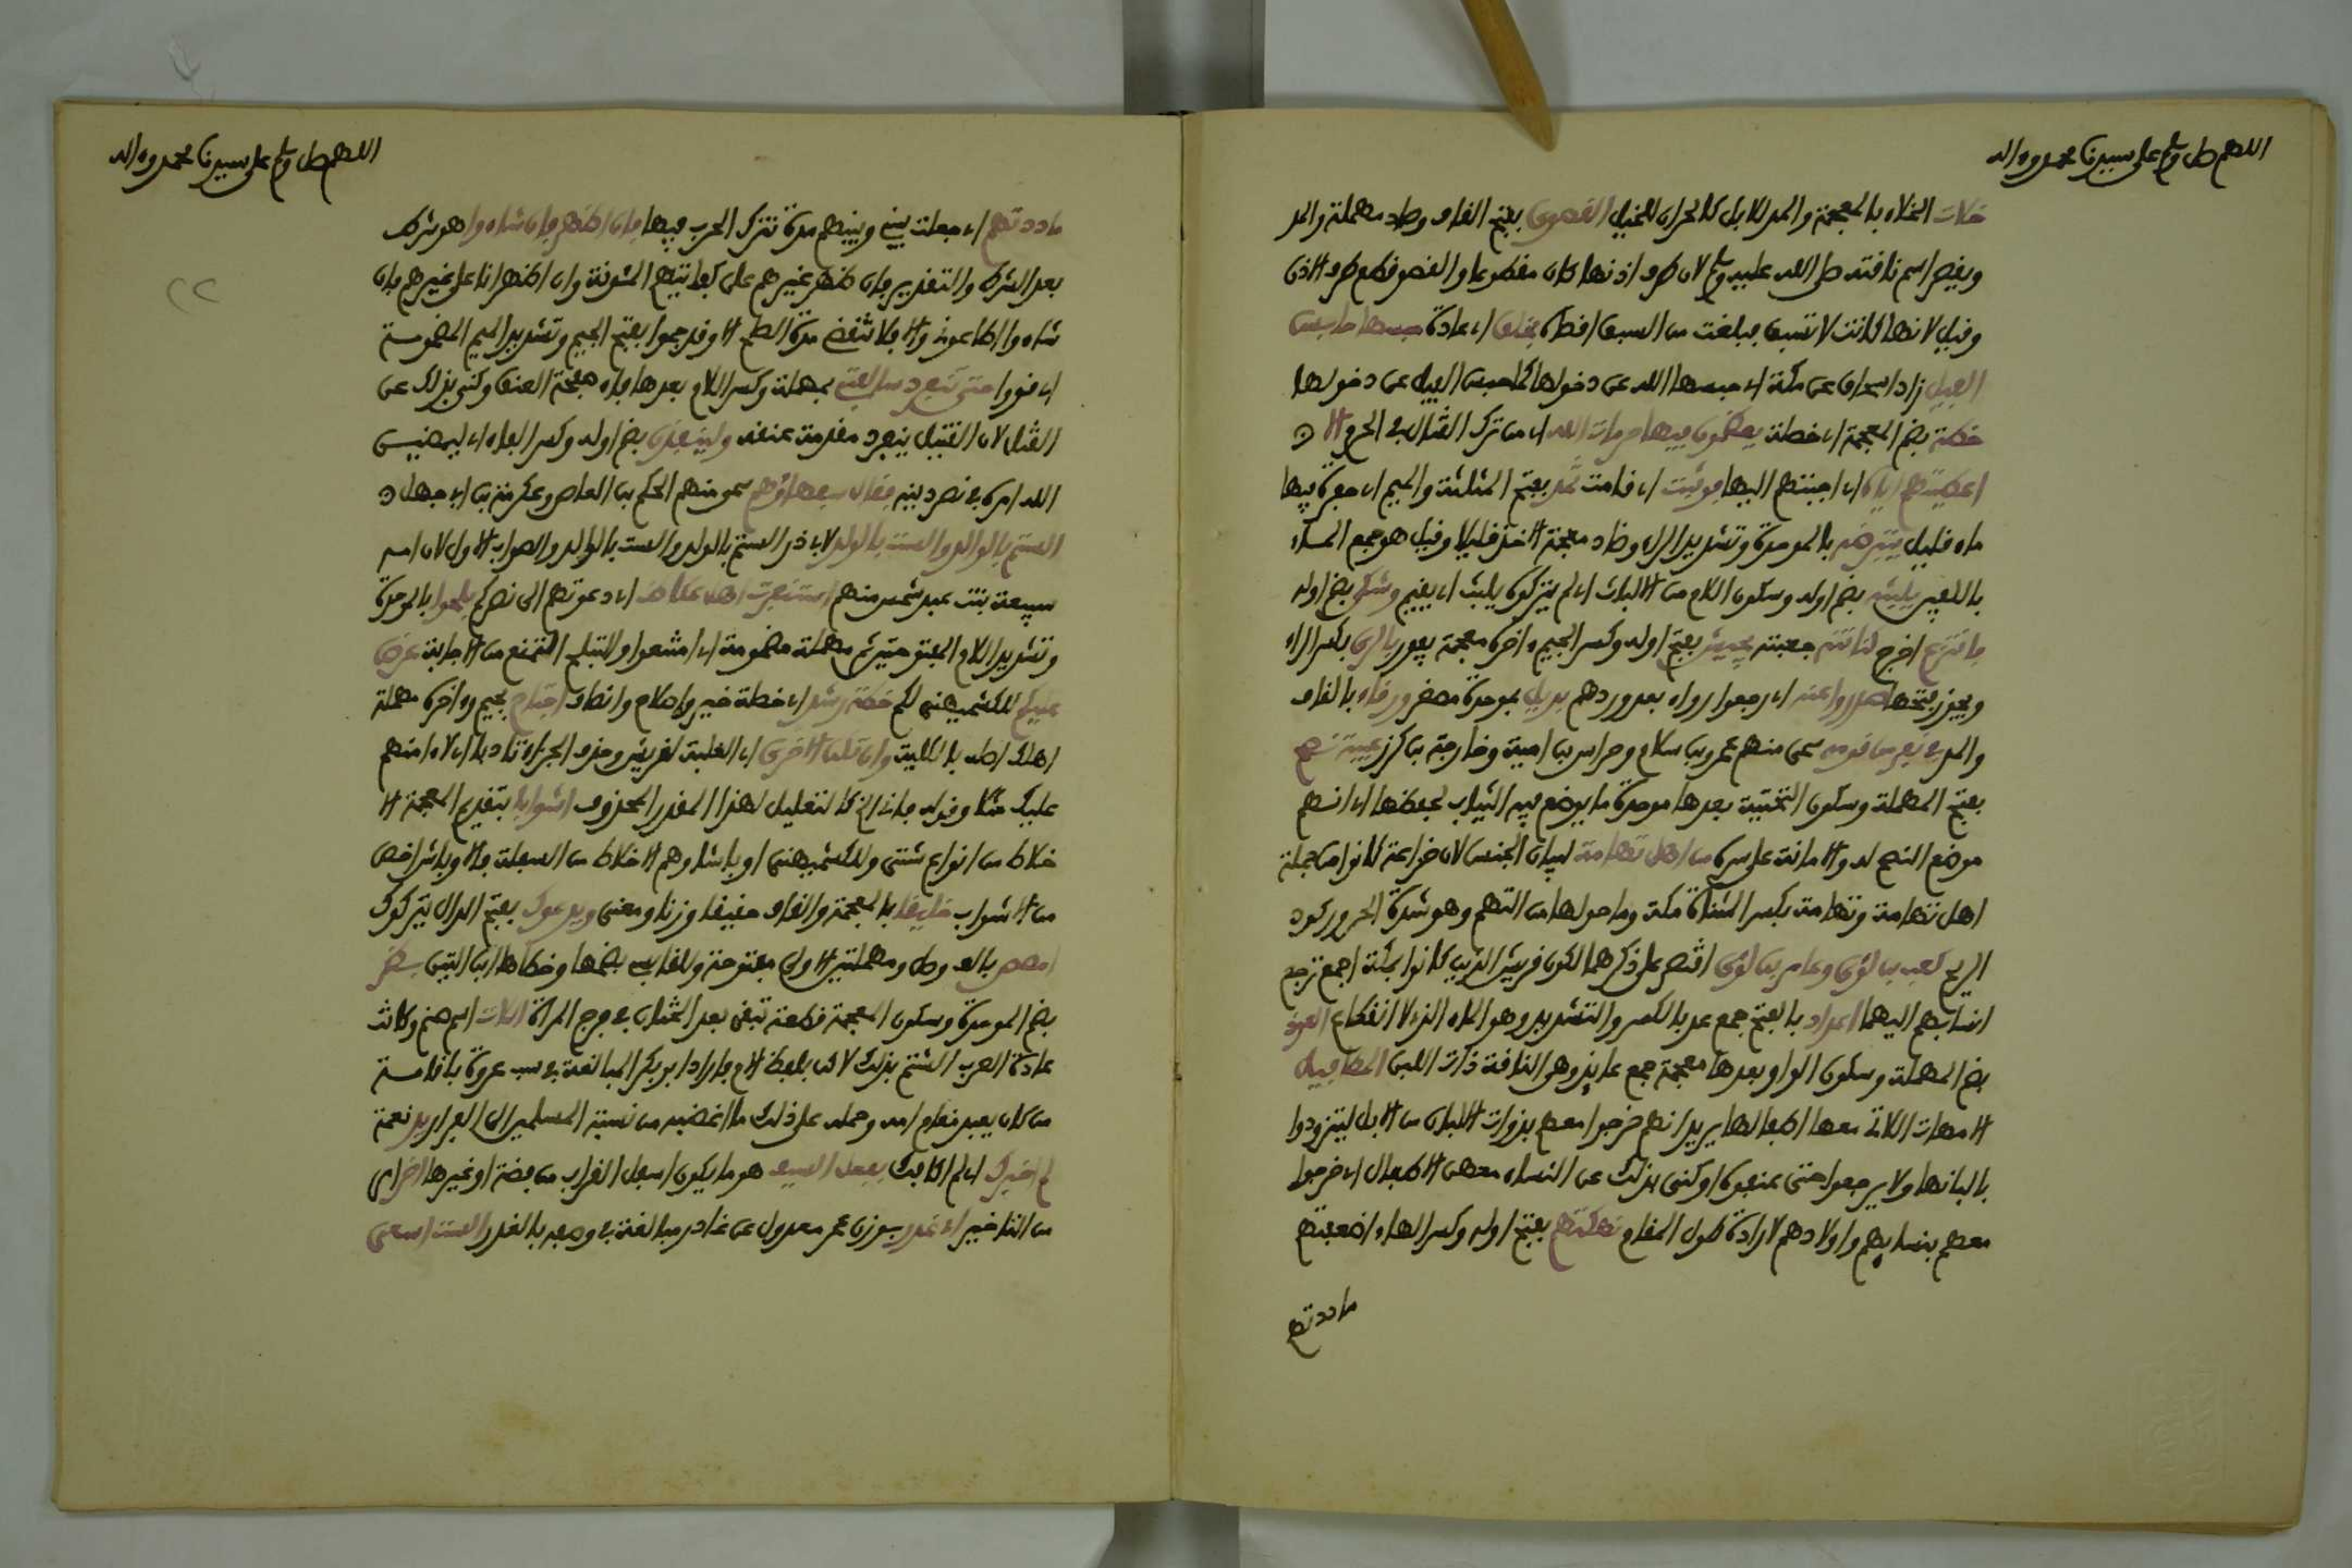 اللهم صل وسلم على سيدنا محمد وءاله
خلات الخلاء بالمعجمة والمد للابل كالحران للخيل القصوى بفتح القاف وصاد مهملة والمد
ويقصر اسم ناقته صلى الله عليه وسلم لان طرف اذنها كان مقطوعا والقصو قطع طرف الاذن
وقيل لانها كانت لا تسبق فبلغت من السبق اقصاه بخلق اي عادة حبسها حابس
الفيل زاد اسحاق عن مكة اي حبسها الله عن دخولها كما حبس الفيل عن دخولها
خطة بضم المعجمة اي خصلة يعظمون فيها حرمات الله اي من ترك القتال في الحرم الا
اعطيتهم اياه اي اجبتهم اليها فوثبت اي قامت ثمد بفتح المثلثة والميم اي حفرة فيها
ماء قليل يتبرضه بالموحدة وتشديد الراء وضاد معجمة الاخذ قليلا وقيل هو جمع الماء
بالكفين يلبثه بضم اوله وسكون اللام من الالباث اي لم يتركوه يلبث اي يقيم وشكي بضم اوله
فانتزع اخرج كنانته جعبته يجيش بفتح اوله وكسر الجيم ءاخره معجمة يفور بالري بكسر الراء
ويجوز فتحها صدروا عنه اي رجعوا رواء بعد وردهم بديل بموحدة مصغر ورقاء بالقاف
والمد في نفر من قومه سمى منهم عمرو بن سالم وحراس بن امية وخارجة بن كرز عيبة نصح
بفتح المهملة وسكون التحتية بعدها موحدة ما يوضع فيه الثياب لحفظها اي انهم
موضع النصح له والامانة على سره من اهل تهامة لبيان الجنس لان خزاعة كانوا من جملة
اهل تهامة وتهامة بكسر المثناة مكة وما حولها من التهم وهو شدة الحر وركود
الريح كعب بن لؤي وعامر بن لؤي اقتصر على ذكرهما لكون قريش الذين كانوا بمكة اجمع ترجع
انسابهم اليهما اعداد بالفتح جمع عد بالكسر والتشديد وهو الماء الذي لا انقطاع العوذ
بضم المهملة وسكون الواو بعدها معجمة جمع عايذ وهي الناقة ذات اللبن المطافيل
الامهات اللاتي معها اطفالها يريد انهم خرجوا معهم بذوات الالبان من الابل ليتزودوا
بالبانها ولا يرجعوا حتى يمنعوه او كنى بذلك عن النساء معهن الاطفال اي خرجوا
معهم بنسايهم واولادهم لارادة طول المقام نهكتهم بفتح اوله وكسر الهاء اضعفتهم
ماددتهم
اللهم صل وسلم على سيدنا محمد وءاله
ماددتهم اي جعلت بيني وبينهم مدة تترك الحرب فيها فان اظهر فان شاءوا هو شرط
بعد الشرط والتقدير فان ظهر غيرهم علي كفانيهم المئونة وان اظهر انا على غيرهم فان
شاءوا اطاعوني والا فلا تنقضي مدة الصلح الا وقد جموا بفتح الجيم وتشديد الميم المضمومة
اي قووا حتى تنفرد سالفتي بمهملة وكسر اللام بعدها فاء صفحة العنق وكنى بذلك عن
القتل لان القتيل ينفرد مقدمة عنقه ولينفذن بضم اوله وكسر الفاء اي ليمضين
الله امره في نصر دينه فقال سفهاؤهم سمي منهم الحكم بن العاص وعكرمة بن ابي جهل
الستم بالوالد والست بالولد لابي ذر الستم بالولد والست بالوالد والصواب الاول لان امه
سبيعة بنت عبد شمس منهم استنفرت اهل عكاظ اي دعوتهم الى نصركم بلحوا بالموحدة
وتشديد اللام المفتوحتين ثم مهملة مضمومة اي امتنعوا والتبلح التمنع من الاجابة عرض
عليكم للكشميهني لكم خطة رشد اي خصلة خير وصلاح وانصاف اجتاح بجيم وءاخره مهملة
اهلك اصله بالكلية وان تكن الاخرى اي الغلبة لقريش وحذف الجزاء تادبا اي لا امنهم
عليك مثلا وقوله فاني الخ كالتعليل لهذا المقدر المحذوف اشوابا بتقديم المعجمة الا
خلاط من انواع شتى وللكشميهني اوباشا وهم الاخلاط من السفلة فالاوباش اخص
من الاشواب خليقا بالمعجمة والقاف حقيقا وزنا ومعنى ويدعوك بفتح الدال يتركوك
امصص بالف وصل ومهملتين الاولى مفتوحة وللقابسي بضمها وخطاها ابن التين بظر
بضم الموحدة وسكون المعجمة قطعة تبقى بعد الختان في فرج المراة اللات اسم صنم وكانت
عادة العرب الشتم بذلك لاكن بلفظ الام فاراد ابو بكر المبالغة في سب عروة باقامة
من كان يعبد مقام امه وحمله على ذلك ما اغضبه من نسبة المسلمين الى الفرار يد نعمة
لم اجزك اي لم اكافك بنعل السيف هو ما يكون اسفل القراب من فضة او غيرها اخر امر
من التاخير اي غدر بوزن عمر معدول عن غادر مبالغة في وصفه بالغدر الست اسعى